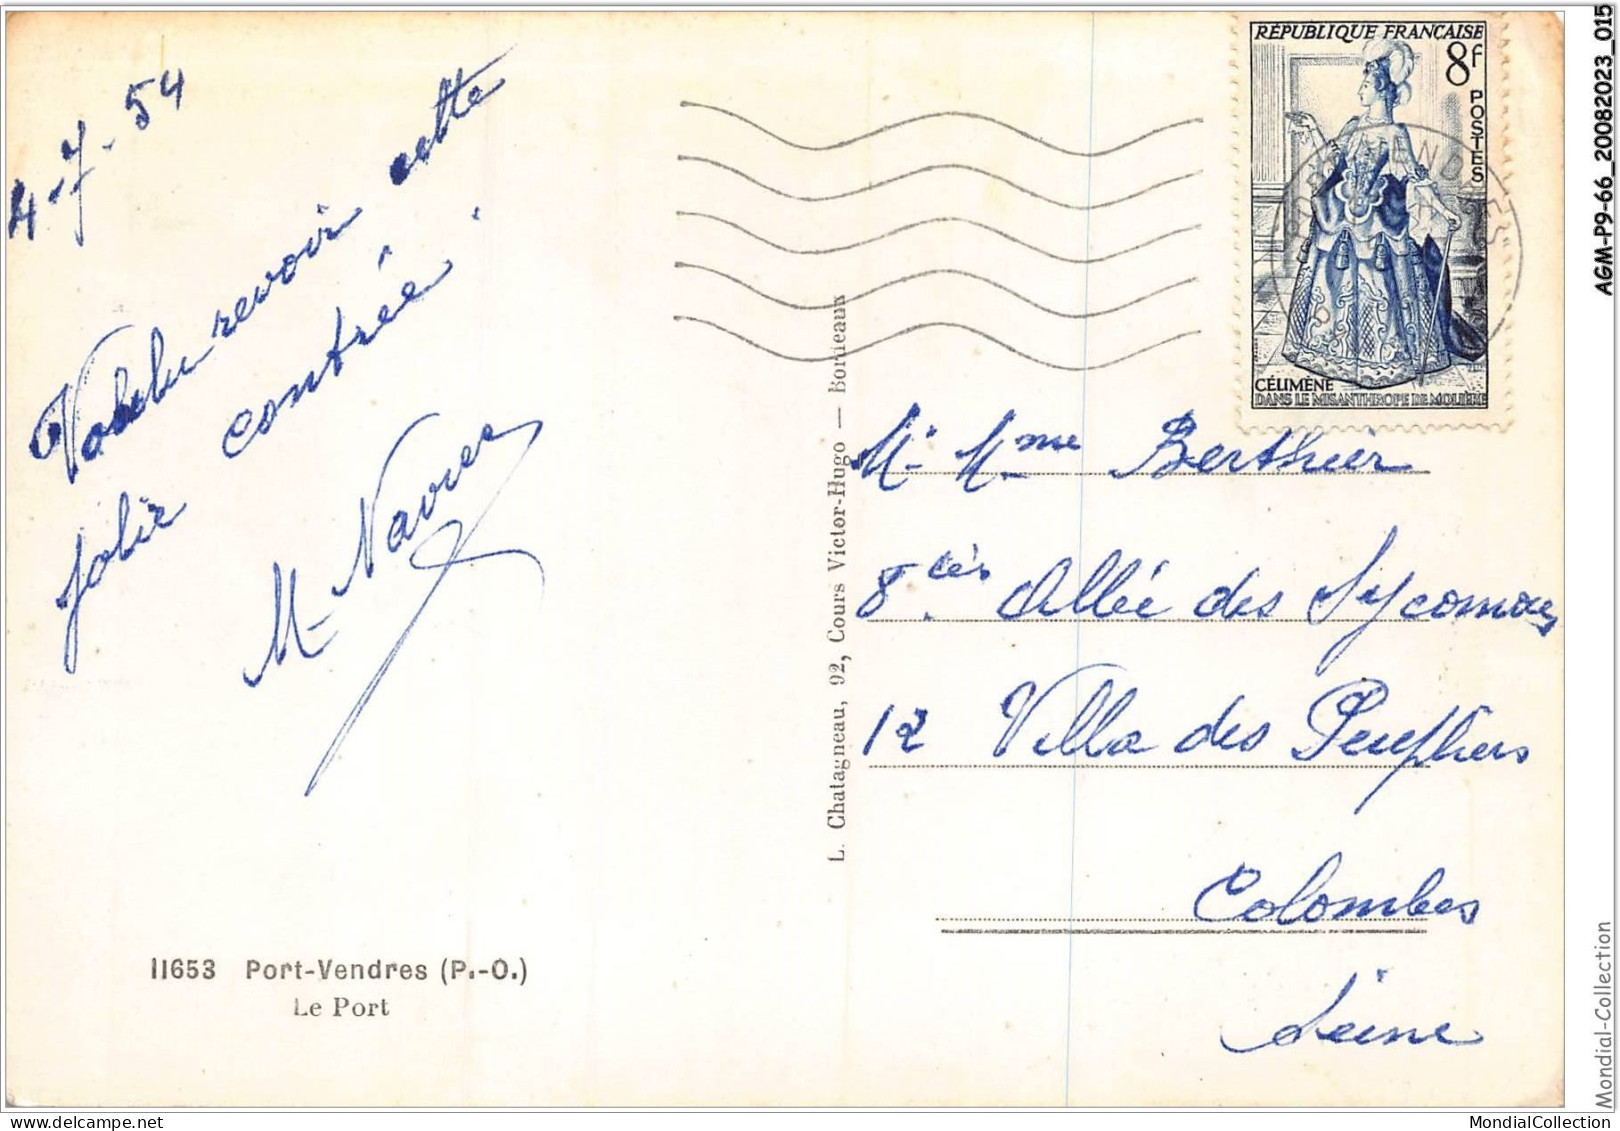 4-7-54
revoir cette
jolie contrée.
M. Navier
11653 Port-Vendres (P.-O.)
Le Port
L. Chatagneau, 92, Cours Victor-Hugo — Bordeaux
RÉPUBLIQUE FRANÇAISE
8f
POSTES
CÉLIMÈNE
DANS LE MISANTHROPE DE MOLIÈRE
Mr Mme Berthier
8 Allée des Sycomores
12 Villa des Peupliers
Colombes
Seine
AGM-P9-66_20082023_015
Mondial-Collection
MondialCollection